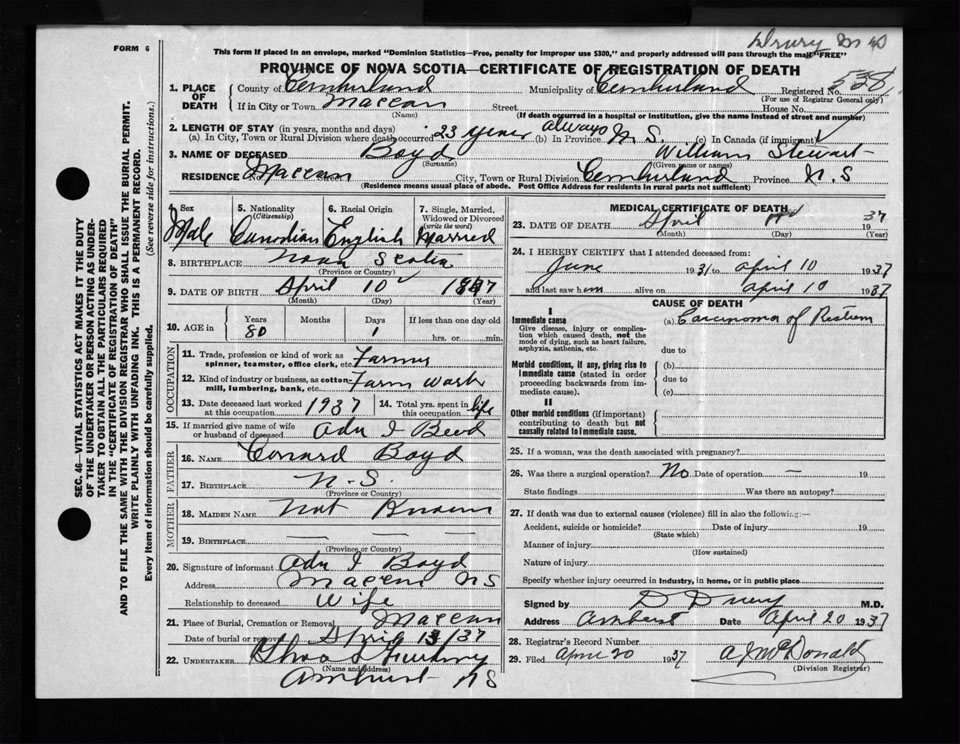 Drury M D
FORM 6
This form if placed in an envelope, marked "Dominion Statistics—Free, penalty for improper use $300," and properly addressed will pass through the mail "FREE"
PROVINCE OF NOVA SCOTIA—CERTIFICATE OF REGISTRATION OF DEATH
SEC. 46—VITAL STATISTICS ACT MAKES IT THE DUTY
OF THE UNDERTAKER OR PERSON ACTING AS UNDER-
TAKER TO OBTAIN ALL THE PARTICULARS REQUIRED
IN THE "CERTIFICATE OF REGISTRATION OF DEATH"
AND TO FILE THE SAME WITH THE DIVISION REGISTRAR WHO SHALL ISSUE THE BURIAL PERMIT.
WRITE PLAINLY WITH UNFADING INK. THIS IS A PERMANENT RECORD.
Every item of information should be carefully supplied. (See reverse side for instructions.)
1. PLACE OF DEATH County of Cumberland Municipality of Cumberland Registered No. 538
(For use of Registrar General only)
If in City or Town Maccan Street House No.
(Name) (If death occurred in a hospital or institution, give the name instead of street and number)
2. LENGTH OF STAY (in years, months and days)
(a) In City, Town or Rural Division where death occurred 23 years (b) In Province always N.S. (c) In Canada (if immigrant) ✓
3. NAME OF DECEASED Boyd William Stewart
(Surname) (Given name or names)
RESIDENCE No. Maccan Street City, Town or Rural Division Cumberland Province N.S
(Residence means usual place of abode. Post Office Address for residents in rural parts not sufficient)
4. Sex Male
5. Nationality (Citizenship) Canadian
6. Racial Origin English
7. Single, Married, Widowed or Divorced (write the word) Married
8. BIRTHPLACE Nova Scotia
(Province or Country)
9. DATE OF BIRTH April 10 ✓
(Month) (Day) (Year)
10. AGE in Years 80 Months Days 1 If less than one day old hrs. or min.
OCCUPATION
11. Trade, profession or kind of work as spinner, teamster, office clerk, etc. Farmer
12. Kind of industry or business, as cotton-mill, lumbering, bank, etc. Farm Work
13. Date deceased last worked at this occupation 1937 14. Total yrs. spent in this occupation life
15. If married give name of wife or husband of deceased
FATHER
16. NAME Boyd
17. BIRTHPLACE N.S.
(Province or Country)
MOTHER
18. MAIDEN NAME Not Known
19. BIRTHPLACE — — —
(Province or Country)
20. Signature of informant Boyd
Address Maccan NS
Relationship to deceased Wife
21. Place of Burial, Cremation or Removal Maccan
Date of burial or removal April 13/37
22. UNDERTAKER
(Name and address)
Amherst NS
MEDICAL CERTIFICATE OF DEATH
23. DATE OF DEATH April 19 37
(Month) (Day) (Year)
24. I HEREBY CERTIFY that I attended deceased from:
June 1931 to April 10 1937
and last saw him alive on April 10 1937
CAUSE OF DEATH
I
Immediate cause (a) Carcinoma of Rectum
Give disease, injury or complication which caused death, not the mode of dying, such as heart failure, asphyxia, asthenia, etc. due to
Morbid conditions, if any, giving rise to immediate cause (stated in order proceeding backwards from immediate cause). (b) due to (c)
II
Other morbid conditions (if important) contributing to death but not causally related to immediate cause.
25. If a woman, was the death associated with pregnancy?
26. Was there a surgical operation? No Date of operation — 19
State findings Was there an autopsy?
27. If death was due to external causes (violence) fill in also the following:—
Accident, suicide or homicide? Date of injury 19
(State which)
Manner of injury
(How sustained)
Nature of injury
Specify whether injury occurred in industry, in home, or in public place
Signed by D Drury M.D.
Address Amherst Date April 20 1937
28. Registrar's Record Number
29. Filed April 20 1937 McDonald
(Division Registrar)